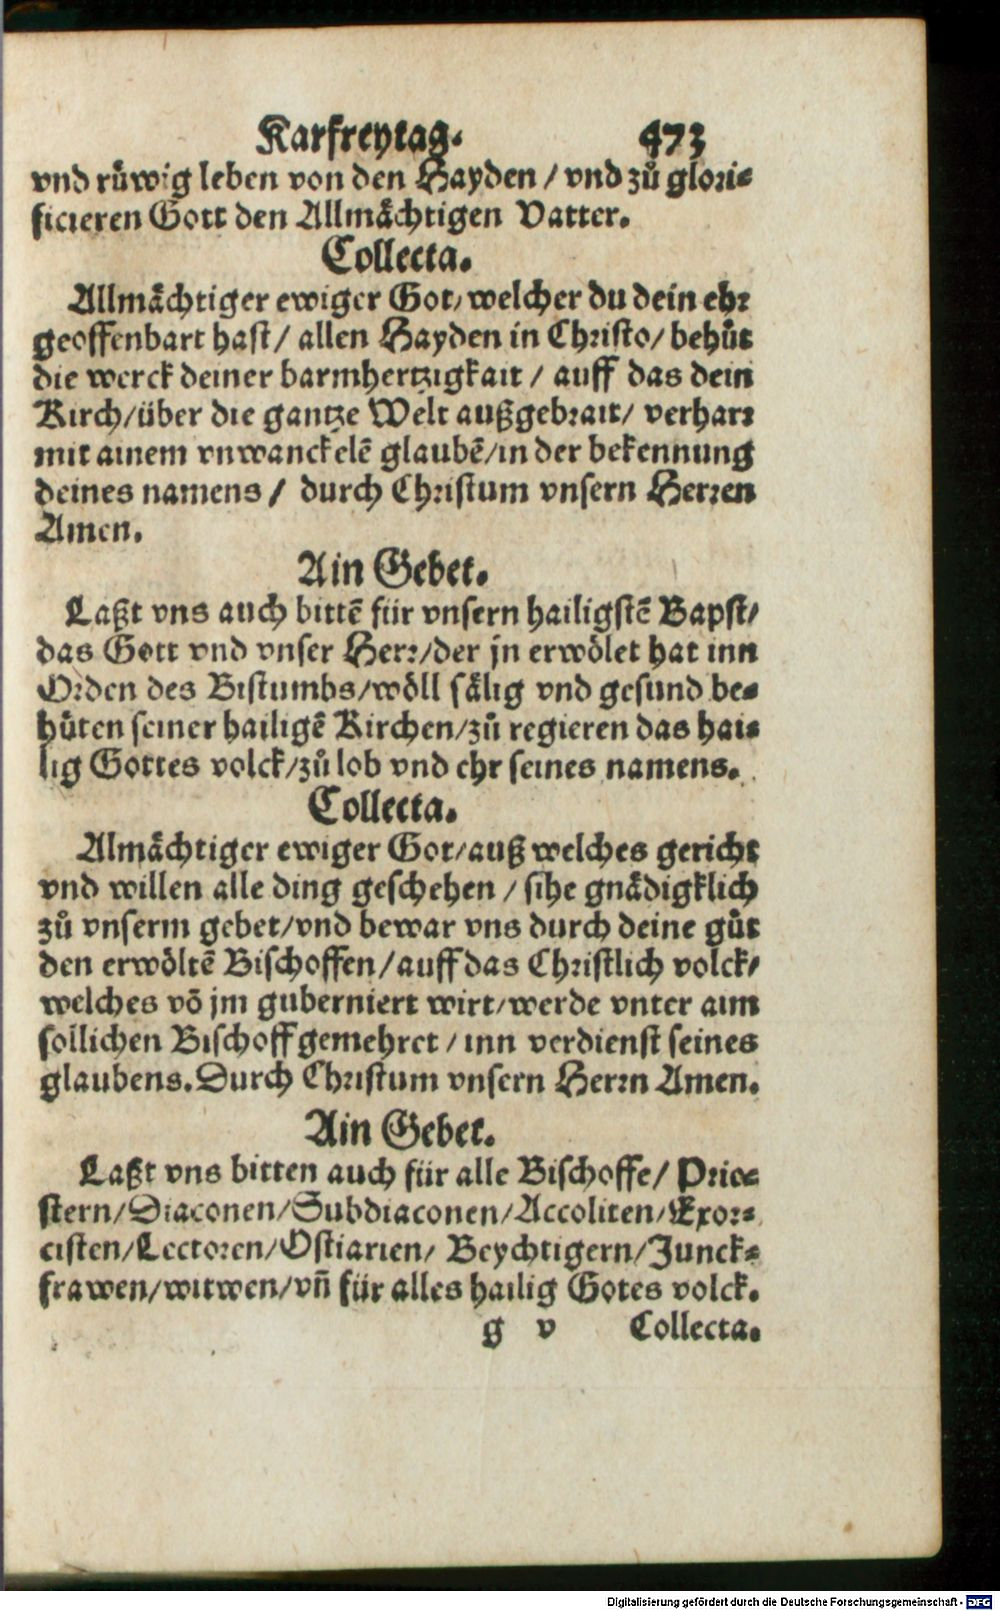 Karfreytag. 473
vnd růwig leben von den Hayden / vnd zů glori⸗
ficieren Gott den Allmächtigen Vatter.
Collecta.
Allmächtiger ewiger Got/ welcher du dein ehr
geoffenbart hast/ allen Hayden in Christo/ behůt
die werck deiner barmhertzigkait / auff das dein
Kirch/über die gantze Welt außgebrait/ verharr
mit ainem vnwanckelē glaubē/in der bekennung
deines namens / durch Christum vnsern Herren
Amen.
Ain Gebet.
Laßt vns auch bittē für vnsern hailigstē Bapst/
das Gott vnd vnser Herr/der jn erwölet hat inn
Orden des Bistumbs/wöll sälig vnd gesund be⸗
hůten seiner hailigē Kirchen/zů regieren das hai⸗
lig Gottes volck/zů lob vnd ehr seines namens.
Collecta.
Almächtiger ewiger Got/auß welches gericht
vnd willen alle ding geschehen / sihe gnädigklich
zů vnserm gebet/vnd bewar vns durch deine gůt
den erwöltē Bischoffen/auff das Christlich volck/
welches vō jm guberniert wirt/werde vnter aim
sollichen Bischoff gemehret / inn verdienst seines
glaubens. Durch Christum vnsern Herrn Amen.
Ain Gebet.
Laßt vns bitten auch für alle Bischoffe/ Prie⸗
stern/Diaconen/Subdiaconen/Accoliten/Exor⸗
cisten/Lectoren/Ostiarien/ Beychtigern/Junck⸗
frawen/witwen/vn̄ für alles hailig Gotes volck.
g v Collecta.
Digitalisierung gefördert durch die Deutsche Forschungsgemeinschaft - DFG